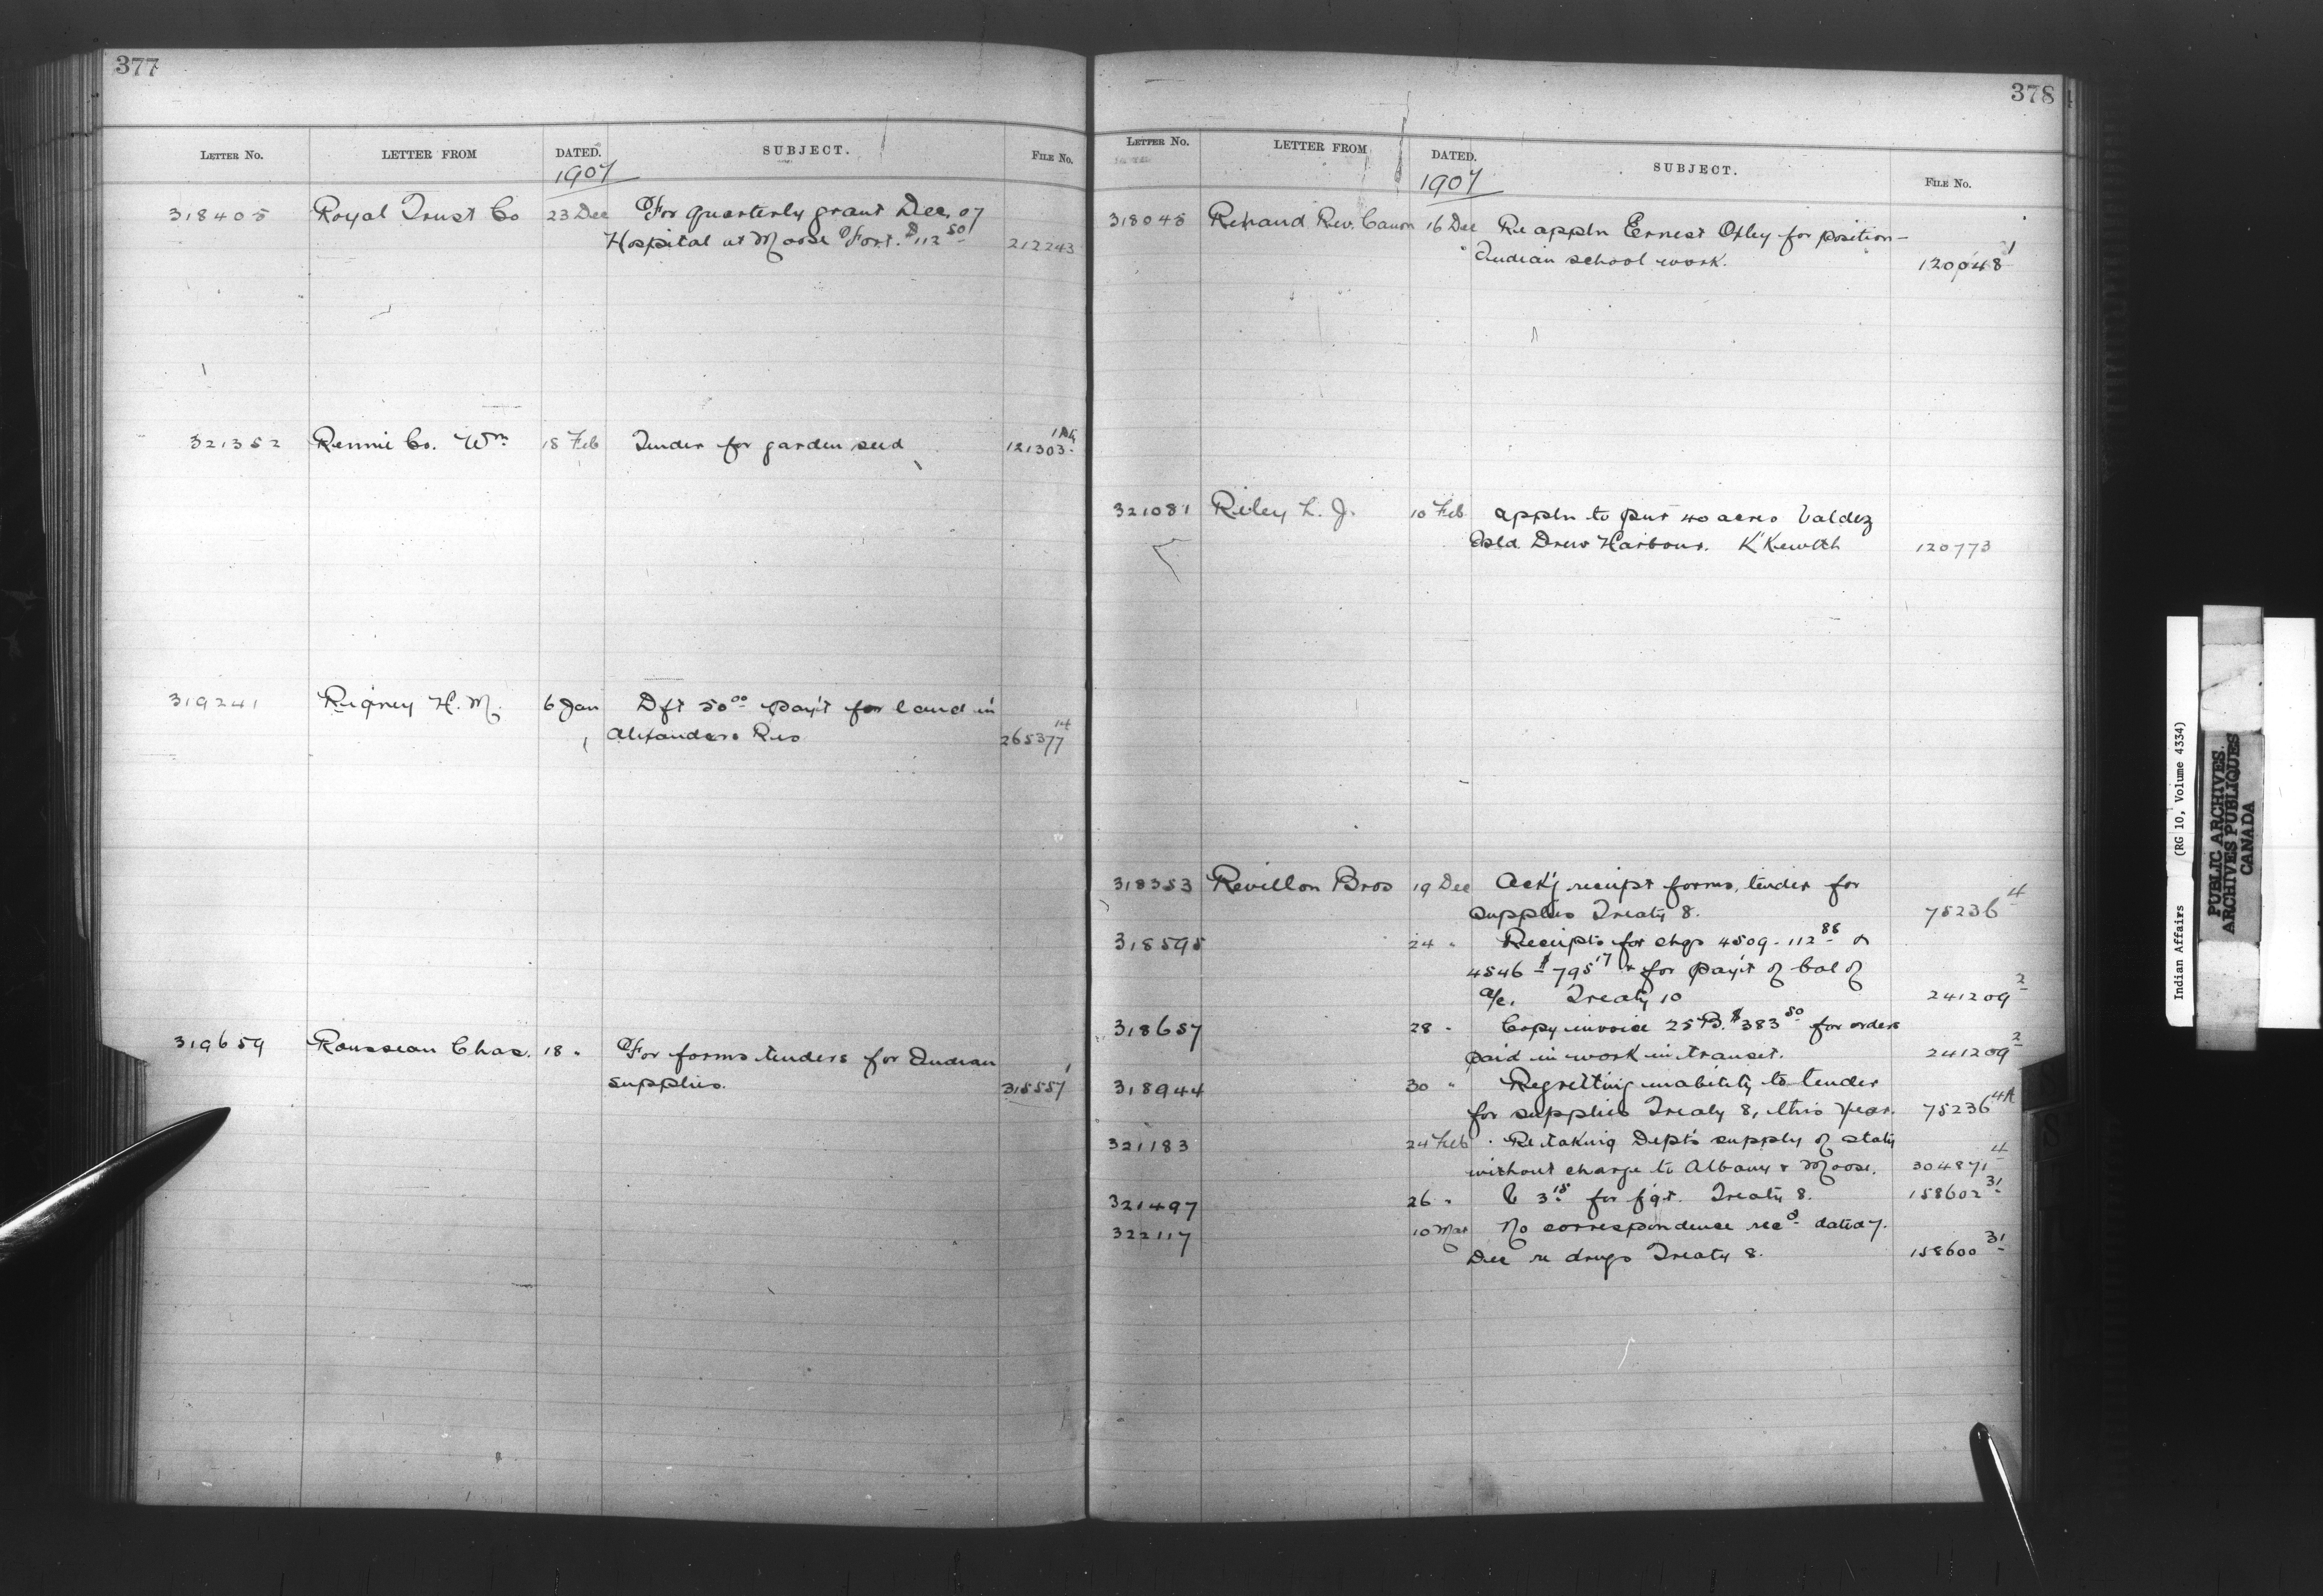 377
LETTER NO. LETTER FROM DATED. SUBJECT. FILE No.
1907
318405 Royal Trust Co 23 Dec For quarterly grant Dec, 07
Hospital at Moose Fort. $112 50 212243
321352 Rennie Co. Wm 18 Feb Tender for garden seed 121303
319241 Rigney H. M. 6 Jan Dft 50 00 pay't for land in
Alexanders Res 265377 14
319659 Rousseau Chas. 18 " For forms tenders for Indian
supplies. 315557 1
378
LETTER No. LETTER FROM DATED. SUBJECT. FILE No.
1907
318045 Renaud Rev. Canon 16 Dec Re appln Ernest Oxley for position -
Indian school work. 120048 1
321081 Riley L. J. 10 Feb appln to pur 40 acres Valdez
Isld. Drew Harbour. 120773
318353 Revillon Bros 19 Dec Ack'g receipt forms, tender for
supplies Treaty 8. 75236 4
318595 24 " Receipts for chqs 4509 - 112 88 &
4546 $795 17 & for pay't of bal of
a/c. Treaty 10 241209 2
318657 28 " Copy invoice 25 B. $383 50 for orders
paid in work in transit. 241209 2
318944 30 " Regretting inability to tender
for supplies Treaty 8, this year. 75236 4A
321183 24 Feb Re taking Dept's supply of staty
without charge to Albany & Moose. 304871 4
321497 26 " 3 15 for fgt. Treaty 8. 158602 31
322117 10 Mar No correspondence recd dated 7.
Dec re drugs Treaty 8. 158600 31
Indian Affairs (RG 10, Volume 4334)
PUBLIC ARCHIVES
ARCHIVES PUBLIQUES
CANADA